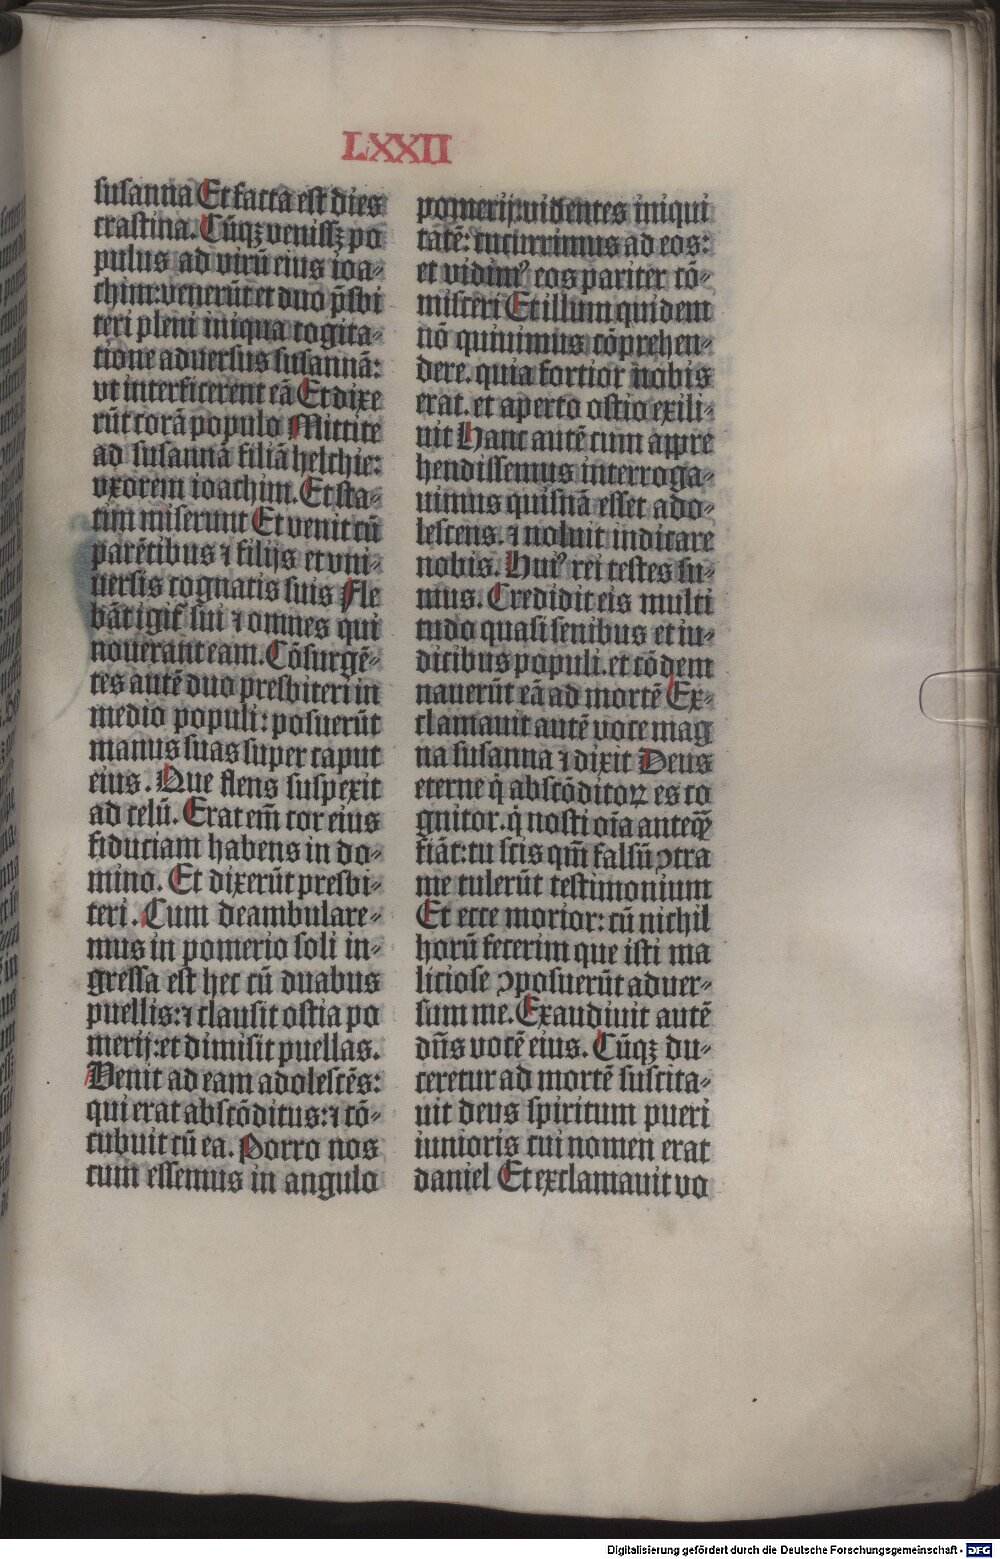 LXXII
susanna Et facta est dies
crastina. Cūqꝫ venissꝫ po
pulus ad virū eius ioa⸗
chim: venerūt et duo p̄sbi
teri pleni iniqua cogita⸗
tione adversus susannā:
vt interficerent eā Et dixe
rūt corā populo Mittite
ad susannā filiā helchie:
vxorem ioachim. Et sta⸗
tim miserunt Et venit cū
parētibus ⁊ filijs et vni⸗
uersis cognatis suis Fle
bāt igit᷑ sui ⁊ omnes qui
nouerant eam. Cōsurgē⸗
tes autē duo presbiteri in
medio populi: posuerūt
manus suas super caput
eius. Que flens suspexit
ad celū. Erat em̄ cor eius
fiduciam habens in do⸗
mino. Et dixerūt presbi⸗
teri. Cum deambulare⸗
mus in pomerio soli in⸗
gressa est hec cū duabus
puellis: ⁊ clausit ostia po
merij: et dimisit puellas.
Venit ad eam adolescēs:
qui erat abscōditus: ⁊ cō⸗
cubuit cū ea. Porro nos
cum essemus in angulo
pomerij: videntes iniqui
tatē: cucurrimus ad eos:
et vidimꝰ eos pariter cō⸗
misceri Et illum quidem
nō quiuimus cōprehen⸗
dere. quia fortior nobis
erat. et aperto ostio exili⸗
uit Hanc autē cum appre
hendissemus interroga⸗
uimus quisnā esset ado⸗
lescens. ⁊ noluit indicare
nobis. Huiꝰ rei testes su⸗
mus. Credidit eis multi
tudo quasi senibus et iu⸗
dicibus populi. et cōdem
nauerūt eā ad mortē Ex⸗
clamauit autē voce mag
na susanna ⁊ dixit Deus
eterne q̇ abscōditoꝝ es co
gnitor. q̇ nosti oīa anteqꝫ̄
fiāt: tu scis qm̄ falsū ꝯtra
me tulerūt testimonium
Et ecce morior: cū nichil
horū fecerim que isti ma
liciose ꝯposuerūt aduer⸗
sum me. Exaudiuit autē
dn̄s vocē eius. Cūqꝫ du⸗
ceretur ad mortē suscita⸗
uit deus spiritum pueri
iunioris cui nomen erat
daniel Et exclamauit vo
Digitalisierung gefördert durch die Deutsche Forschungsgemeinschaft - DFG